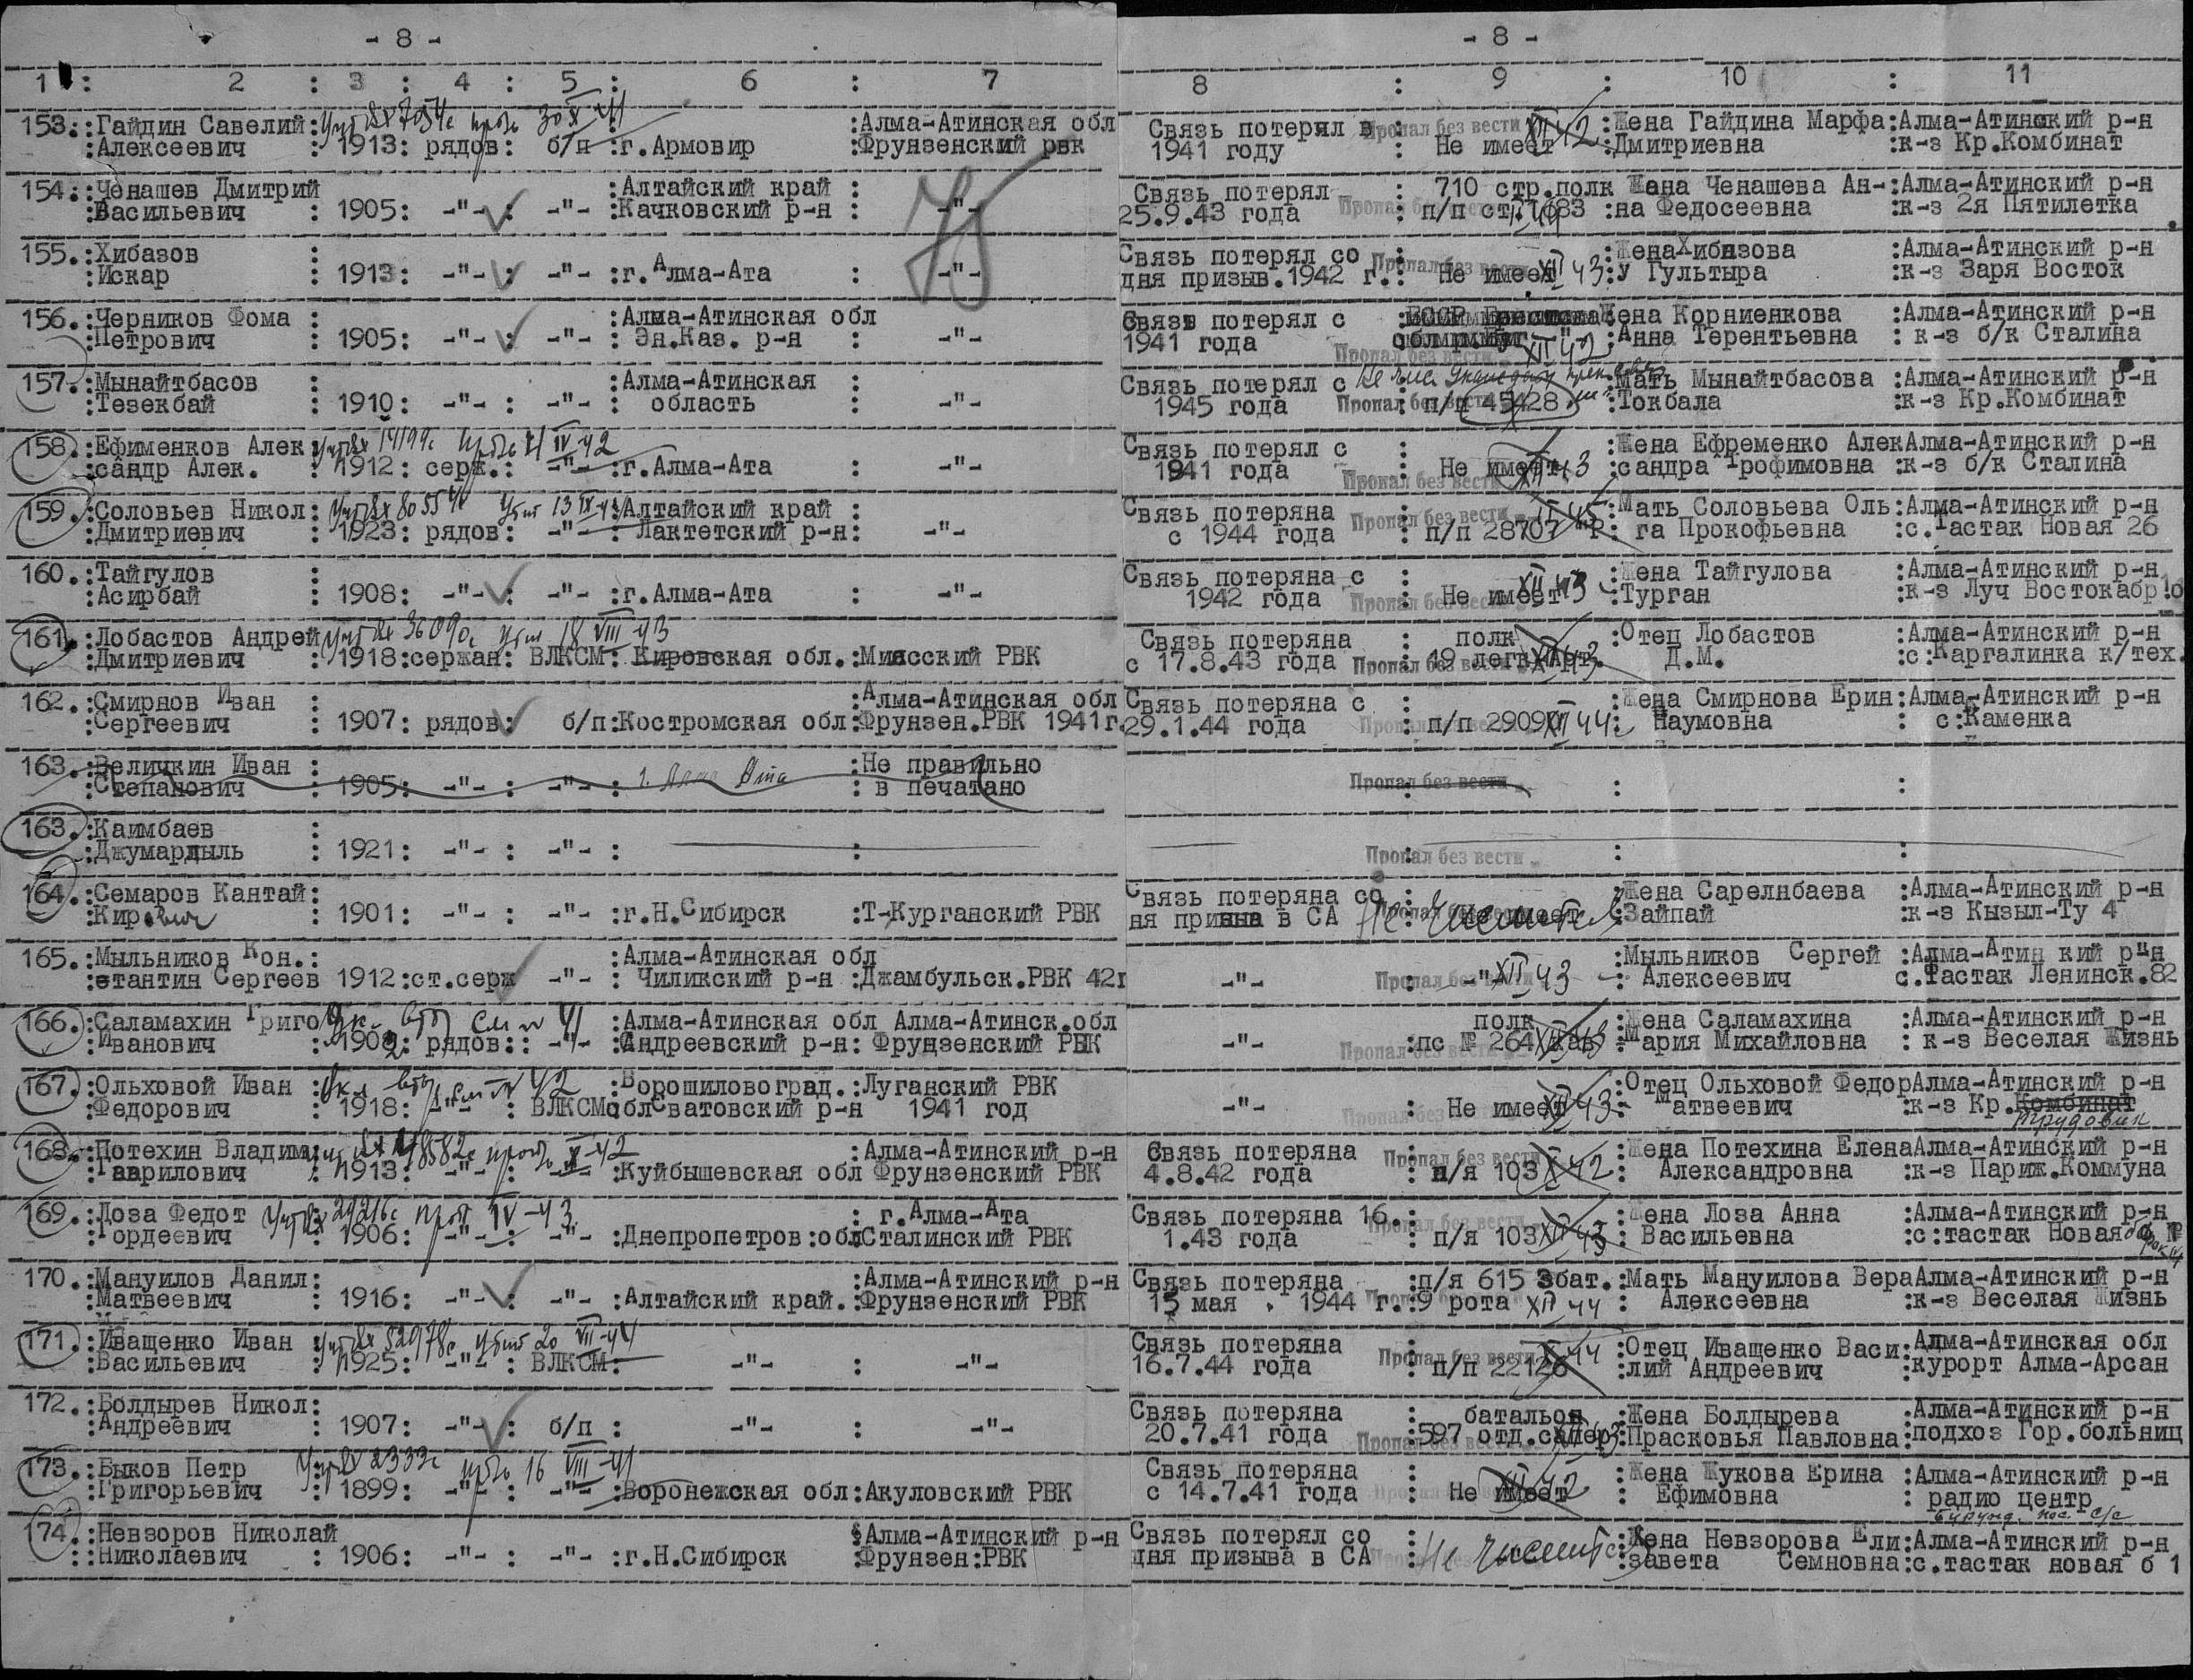 - 8 -
1 : 2 : 3 : 4 : 5 : 6 : 7
153.:Гайдин Савелий: :Алма-Атинская обл
:Алексеевич : 1913: рядов: б/п :г.Армовир :Фрунзенский рвк
154.:Ченашев Дмитрий :Алтайский край :
:Васильевич : 1905: -"- : -"- :Качковский р-н : -"-
155.:Хибазов :
:Искар : 1913: -"- : -"- :г.Алма-Ата : -"-
156.:Черников Фома : :Алма-Атинская обл
:Петрович : 1905: -"- : -"- : Эн.Каз. р-н : -"-
157.:Мынайтбасов : :Алма-Атинская :
:Тезекбай : 1910: -"- : -"- : область : -"-
158.:Ефименков Алек
:сандр Алек. : 1912: серж.: -"- :г.Алма-Ата : -"-
159.:Соловьев Никол: :Алтайский край :
:Дмитриевич : 1923: рядов: -"- : Лактетский р-н: -"-
160.:Тайгулов :
:Асирбай : 1908: -"- : -"- :г.Алма-Ата : -"-
161.:Лобастов Андрей
:Дмитриевич : 1918:сержан: ВЛКСМ: Кировская обл.:Миасский РВК
162.:Смирнов Иван : :Алма-Атинская обл
:Сергеевич : 1907: рядов: б/п:Костромская обл:Фрунзен.РВК 1941г.
163.:Величкин Иван : :Не правильно
:Степанович : 1905: -"- : -"- : г. Алма Ата : в печатано
163.:Каимбаев :
:Джумардыль : 1921: -"- : -"- : :
164.:Семаров Кантай:
:Кирович : 1901: -"- : -"- :г.Н.Сибирск :Т-Курганский РВК
165.:Мыльников Кон.: :Алма-Атинская обл
:стантин Сергеев 1912:ст.серж -"- : Чиликский р-н :Джамбульск.РВК 42г
166.:Саламахин Григо :Алма-Атинская обл Алма-Атинск.обл
:Иванович : 1902: рядов: -"- :Андреевский р-н: Фрунзенский РВК
167.:Ольховой Иван : :Ворошиловоград.:Луганский РВК
:Федорович : 1918: -"- : ВЛКСМоблСватовский р-н 1941 год
168.:Потехин Владим :Алма-Атинский р-н
:Гаврилович : 1913: -"- : -"- :Куйбышевская обл Фрунзенский РВК
169.:Лоза Федот : г.Алма-Ата
:Гордеевич : 1906: -"- : -"- :Днепропетров:обл:Сталинский РВК
170.:Мануилов Данил: :Алма-Атинский р-н
:Матвеевич : 1916: -"- : -"- :Алтайский край.:Фрунзенский РВК
171.:Иващенко Иван
:Васильевич : 1925: -"- : ВЛКСМ: -"- : -"-
172.:Болдырев Никол:
:Андреевич : 1907: -"- : б/п : -"- : -"-
173.:Быков Петр
:Григорьевич : 1899: -"- : -"- :Воронежская обл:Акуловский РВК
174.:Невзоров Николай :Алма-Атинский р-н
:Николаевич : 1906: -"- : -"- :г.Н.Сибирск :Фрунзен:РВК
- 8 -
8 : 9 : 10 : 11
Связь потерял в Пропал без вести XII 42 :Жена Гайдина Марфа:Алма-Атинский р-н
1941 году : Не имеет :Дмитриевна :к-з Кр.Комбинат
Связь потерял : 710 стр.полк Жена Ченашева Ан-:Алма-Атинский р-н
25.9.43 года Пропал без вести п/п ст. :на Федосеевна :к-з 2я Пятилетка
Связь потерял со Пропал без вести :Жена Хибязова :Алма-Атинский р-н
дня призыв.1942 г.: Не имеет XII 43 :у Гультыра :к-з Заря Восток
Связь потерял с Жена Корниенкова :Алма-Атинский р-н
1941 года Пропал без вести XII 42 :Анна Терентьевна : к-з б/к Сталина
Связь потерял с :Мать Мынайтбасова :Алма-Атинский р-н
1945 года Пропал без вести п/п 45428 :Токбала :к-з Кр.Комбинат
Связь потерял с :Жена Ефременко АлекАлма-Атинский р-н
1941 года Пропал без вести Не имеет XII 43 :сандра Трофимовна :к-з б/к Сталина
Связь потеряна Пропал без вести :Мать Соловьева Оль:Алма-Атинский р-н
с 1944 года : п/п 28707 "Р: га Прокофьевна :с.Тастак Новая 26
Связь потеряна с :Жена Тайгулова :Алма-Атинский р-н
1942 года Пропал без вести Не имеет XII 43 :Турган :к-з Луч Востокабр10
Связь потеряна : полк :Отец Лобастов :Алма-Атинский р-н
с 17.8.43 года Пропал без вести 19 легк.Арт. : Д.М. :с:Каргалинка к/тех.
Связь потеряна с :Жена Смирнова Ерин:Алма-Атинский р-н
29.1.44 года Пропал без вести : п/п 2909 XII 44 : Наумовна : с:Каменка
Пропал без вести : :
Пропал без вести : :
Связь потеряна со :Жена Сарелнбаева :Алма-Атинский р-н
ня призыва в СА Пропал без вести Не имеет Не числится :Зайпай :к-з Кызыл-Ту 4
:Мыльников Сергей :Алма-Атин кий р-н
-"- Пропал без вести -"- XII 43 : Алексеевич с.Тастак Ленинск.82
полк :Жена Саламахина :Алма-Атинский р-н
-"- Пропал без вести :пс № 264 :Мария Михайловна : к-з Веселая Жизнь
:Отец Ольховой ФедорАлма-Атинский р-н
-"- Пропал без вести Не имеет XII 43 : Матвеевич :к-з Кр.Комбинат
Трудовик
Связь потеряна Пропал без вести :Жена Потехина ЕленаАлма-Атинский р-н
4.8.42 года : п/я 103 X 42 : Александровна :к-з Париж.Коммуна
Связь потеряна 16.: Пропал без вести :Жена Лоза Анна :Алма-Атинский р-н
1.43 года : п/я 103 XII 43 : Васильевна :с:тастак Новая
Связь потеряна :п/я 615 3бат.:Мать Мануилова ВераАлма-Атинский р-н
15 мая . 1944 г.:9 рота XII 44 : Алексеевна :к-з Веселая Жизнь
Связь потеряна :Отец Иващенко Васи:Алма-Атинская обл
16.7.44 года Пропал без вести п/п 22126 :лий Андреевич :курорт Алма-Арсан
Связь потеряна : батальон :Жена Болдырева :Алма-Атинский р-н
20.7.41 года Пропал без вести :597 отд.сапер:Прасковья Павловна:подхоз Гор.больниц
Связь потеряна :Жена Жукова Ерина :Алма-Атинский р-н
с 14.7.41 года Пропал без вести Не имеет XII 42 : Ефимовна : радио центр
Связь потерял со :Жена Невзорова Ели:Алма-Атинский р-н
дня призыва в СА Не числится :завета Семновна:с.тастак новая б 1